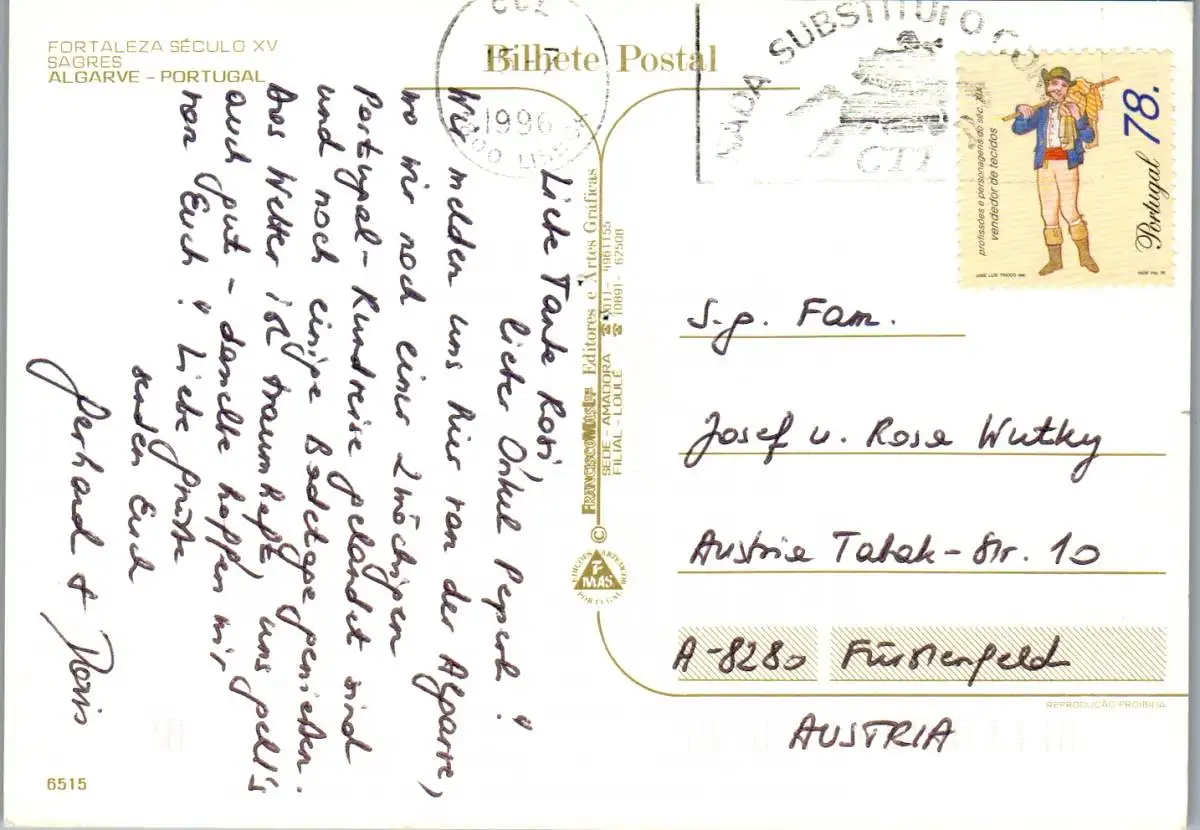 FORTALEZA SÉCULO XV
SAGRES
ALGARVE - PORTUGAL
Bilhete Postal
CCL
1996
NADA SUBSTITUI O
CTT
profissões e personagens do séc. XIX
vendedor de tecidos
Portugal 78.
Liebe Tante Rosi,
lieber Onkel Peperl!"
Wir melden uns hier von der Algarve,
wo wir noch einer 2wöchigen
Portugal-Rundreise gelandet sind
und noch einige Badetage genießen.
Das Wetter ist traumhaft, uns geht's
auch gut - dasselbe hoffen wir
von Euch! " Liebe Grüße
senden Euch
Gerhard + Doris
FRANCISCO MAS, Lda Editores e Artes Gráficas
SEDE - AMADORA ☎ (01) - 4961155
FILIAL - LOULÉ ☎ (089) - 62508
©
MAS
PORTUGAL
S.g. Fam.
Josef u. Rosa Wutky
Austria Tabak-Str. 10
A-8280 Fürstenfeld
AUSTRIA
REPRODUÇÃO PROIBIDA
6515